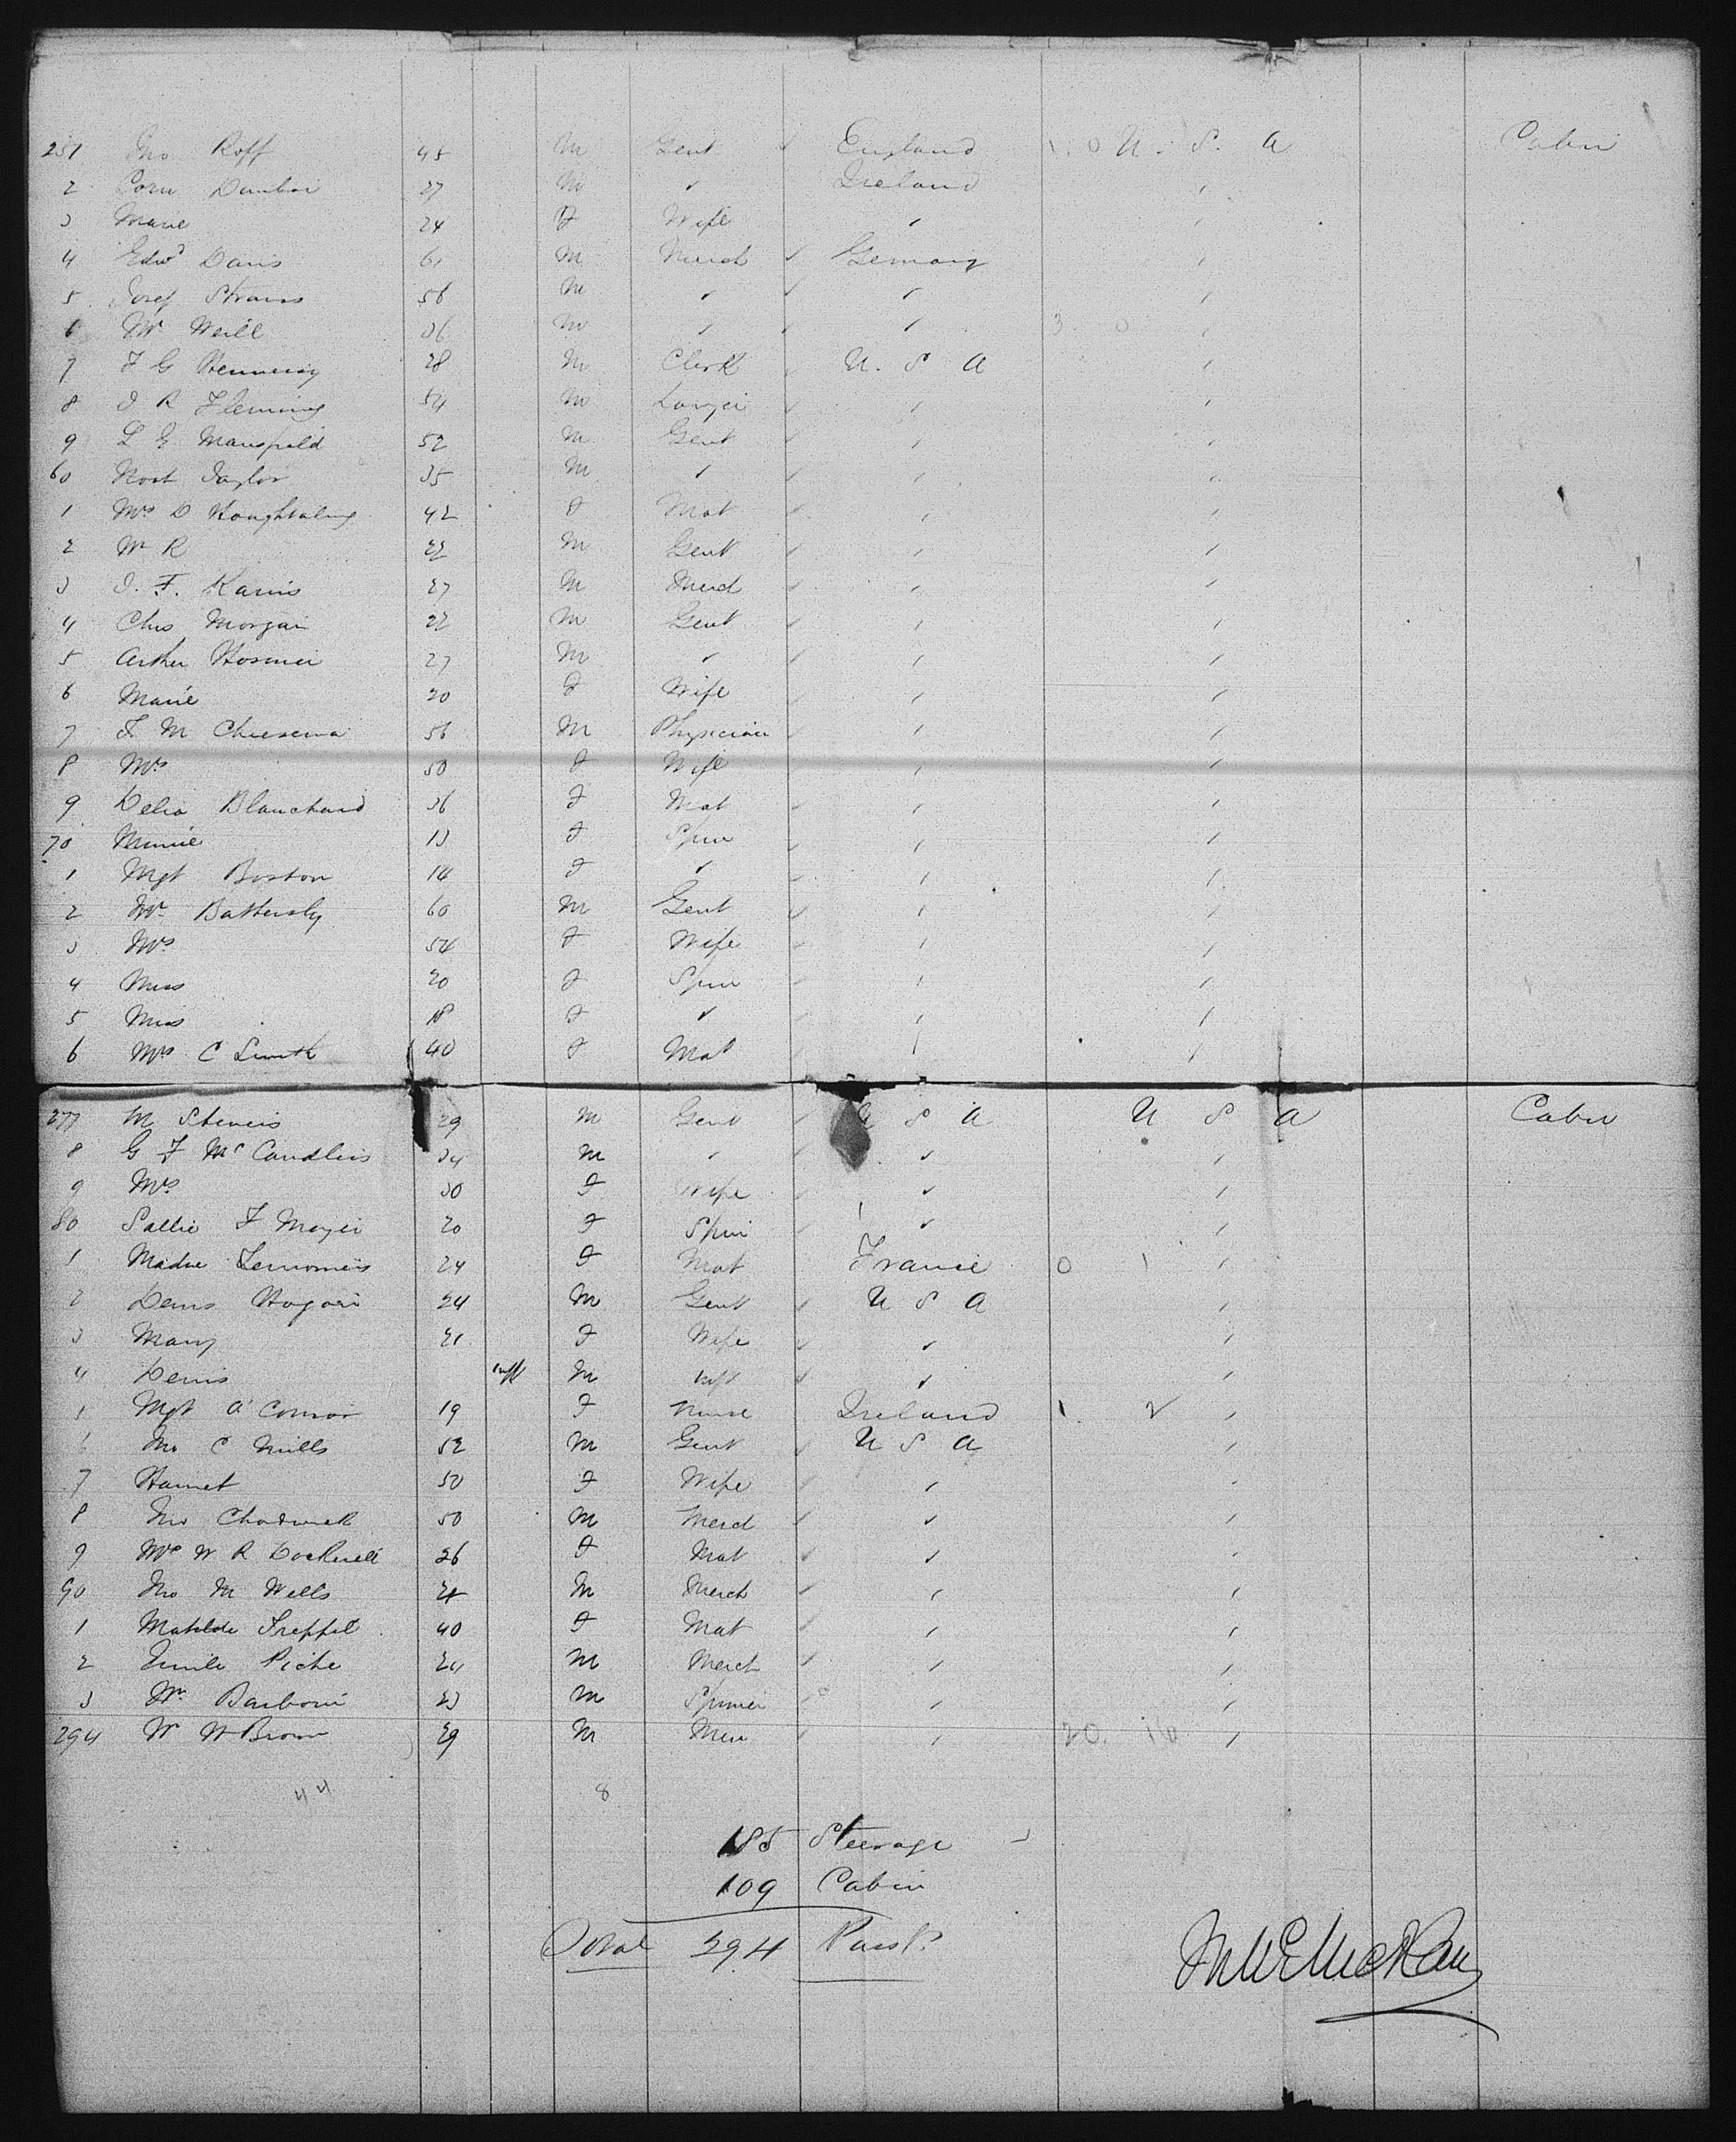 251 Jno Roff 45 M Gent ✓ England 1. 0 U. S. A Cabin
2 Corn Dunbar 27 M ✓ Ireland ,
3 Marie 24 F Wife ✓ ,
4 Edwd Davis 61 M Merch ✓ Germany ,
5 Josef Strauss 56 M ✓ ✓ ✓ ,
6 Wm Weill 36 M ✓ ✓ ✓ 3. 0 ,
7 F G Hennessy 28 M Clerk ✓ U. S A ,
8 J R Fleming 54 M Lawyer ✓ , ,
9 L E Mansfield 52 M Gent ✓ , ,
60 Robt Taylor 35 M ✓ ✓ , ,
1 Mrs D Houghtaling 42 F Mat ✓ , ,
2 Wm R 22 M Gent ✓ , ,
3 J. F. Harris 27 M Merch ✓ , ,
4 Chs Morgan 22 M Gent ✓ , ,
5 Arthur Hosmer 27 M ✓ ✓ , ,
6 Marie 20 F Wife ✓ , ,
7 F M Cheesema 56 M Physician ✓ , ,
8 Mrs 50 F Wife , ,
9 Delia Blanchard 36 F Mat ✓ , ,
70 Minnie 13 F Spin ✓ , ,
1 Mgt Boston 14 F ✓ ✓ , ,
2 Wm Battersby 60 M Gent ✓ , ,
3 Mrs 54 F Wife ✓ , ,
4 Miss 20 F Spin ✓ , ,
5 Miss 18 F ✓ ✓ , ,
6 Mrs C Smith 40 F Mat ✓ , ,
277 M Stevens 29 M Gent ✓ U S A U S A Cabin
8 G F McCandless 34 M ✓ ✓ ✓ ,
9 Mrs 30 F Wife ✓ ✓ ,
80 Sallie F Mayer 20 F Spin ✓ ✓ ,
1 Madme 24 F Mat France 0 1 ,
2 Denis Hogan 24 M Gent ✓ U S A ,
3 Mary 21 F Wife ✓ ✓ ,
4 Denis inft M inft ✓ ✓ ,
5 Mgt O'Connor 19 F Nurse Ireland 1. ✓ ,
6 Jno C Mills 52 M Gent ✓ U S A ,
7 Harriet 50 F Wife ✓ , ,
8 Jno Chadwick 50 M Merch ✓ ✓ ,
9 Mrs W R Rockwell 26 F Mat ✓ ✓ ,
90 Jno M Wells 24 M Merch ✓ , ,
1 Matilde Treffel 40 F Mat ✓ , ,
2 Emile Piche 24 M Merch ✓ , ,
3 Wm Barbour 23 M Spinner ✓ , ,
294 W H Brown 29 M Mer ✓ , 20. 16 ,
44 8
185 Steerage
109 Cabin
Total 294 Passrs